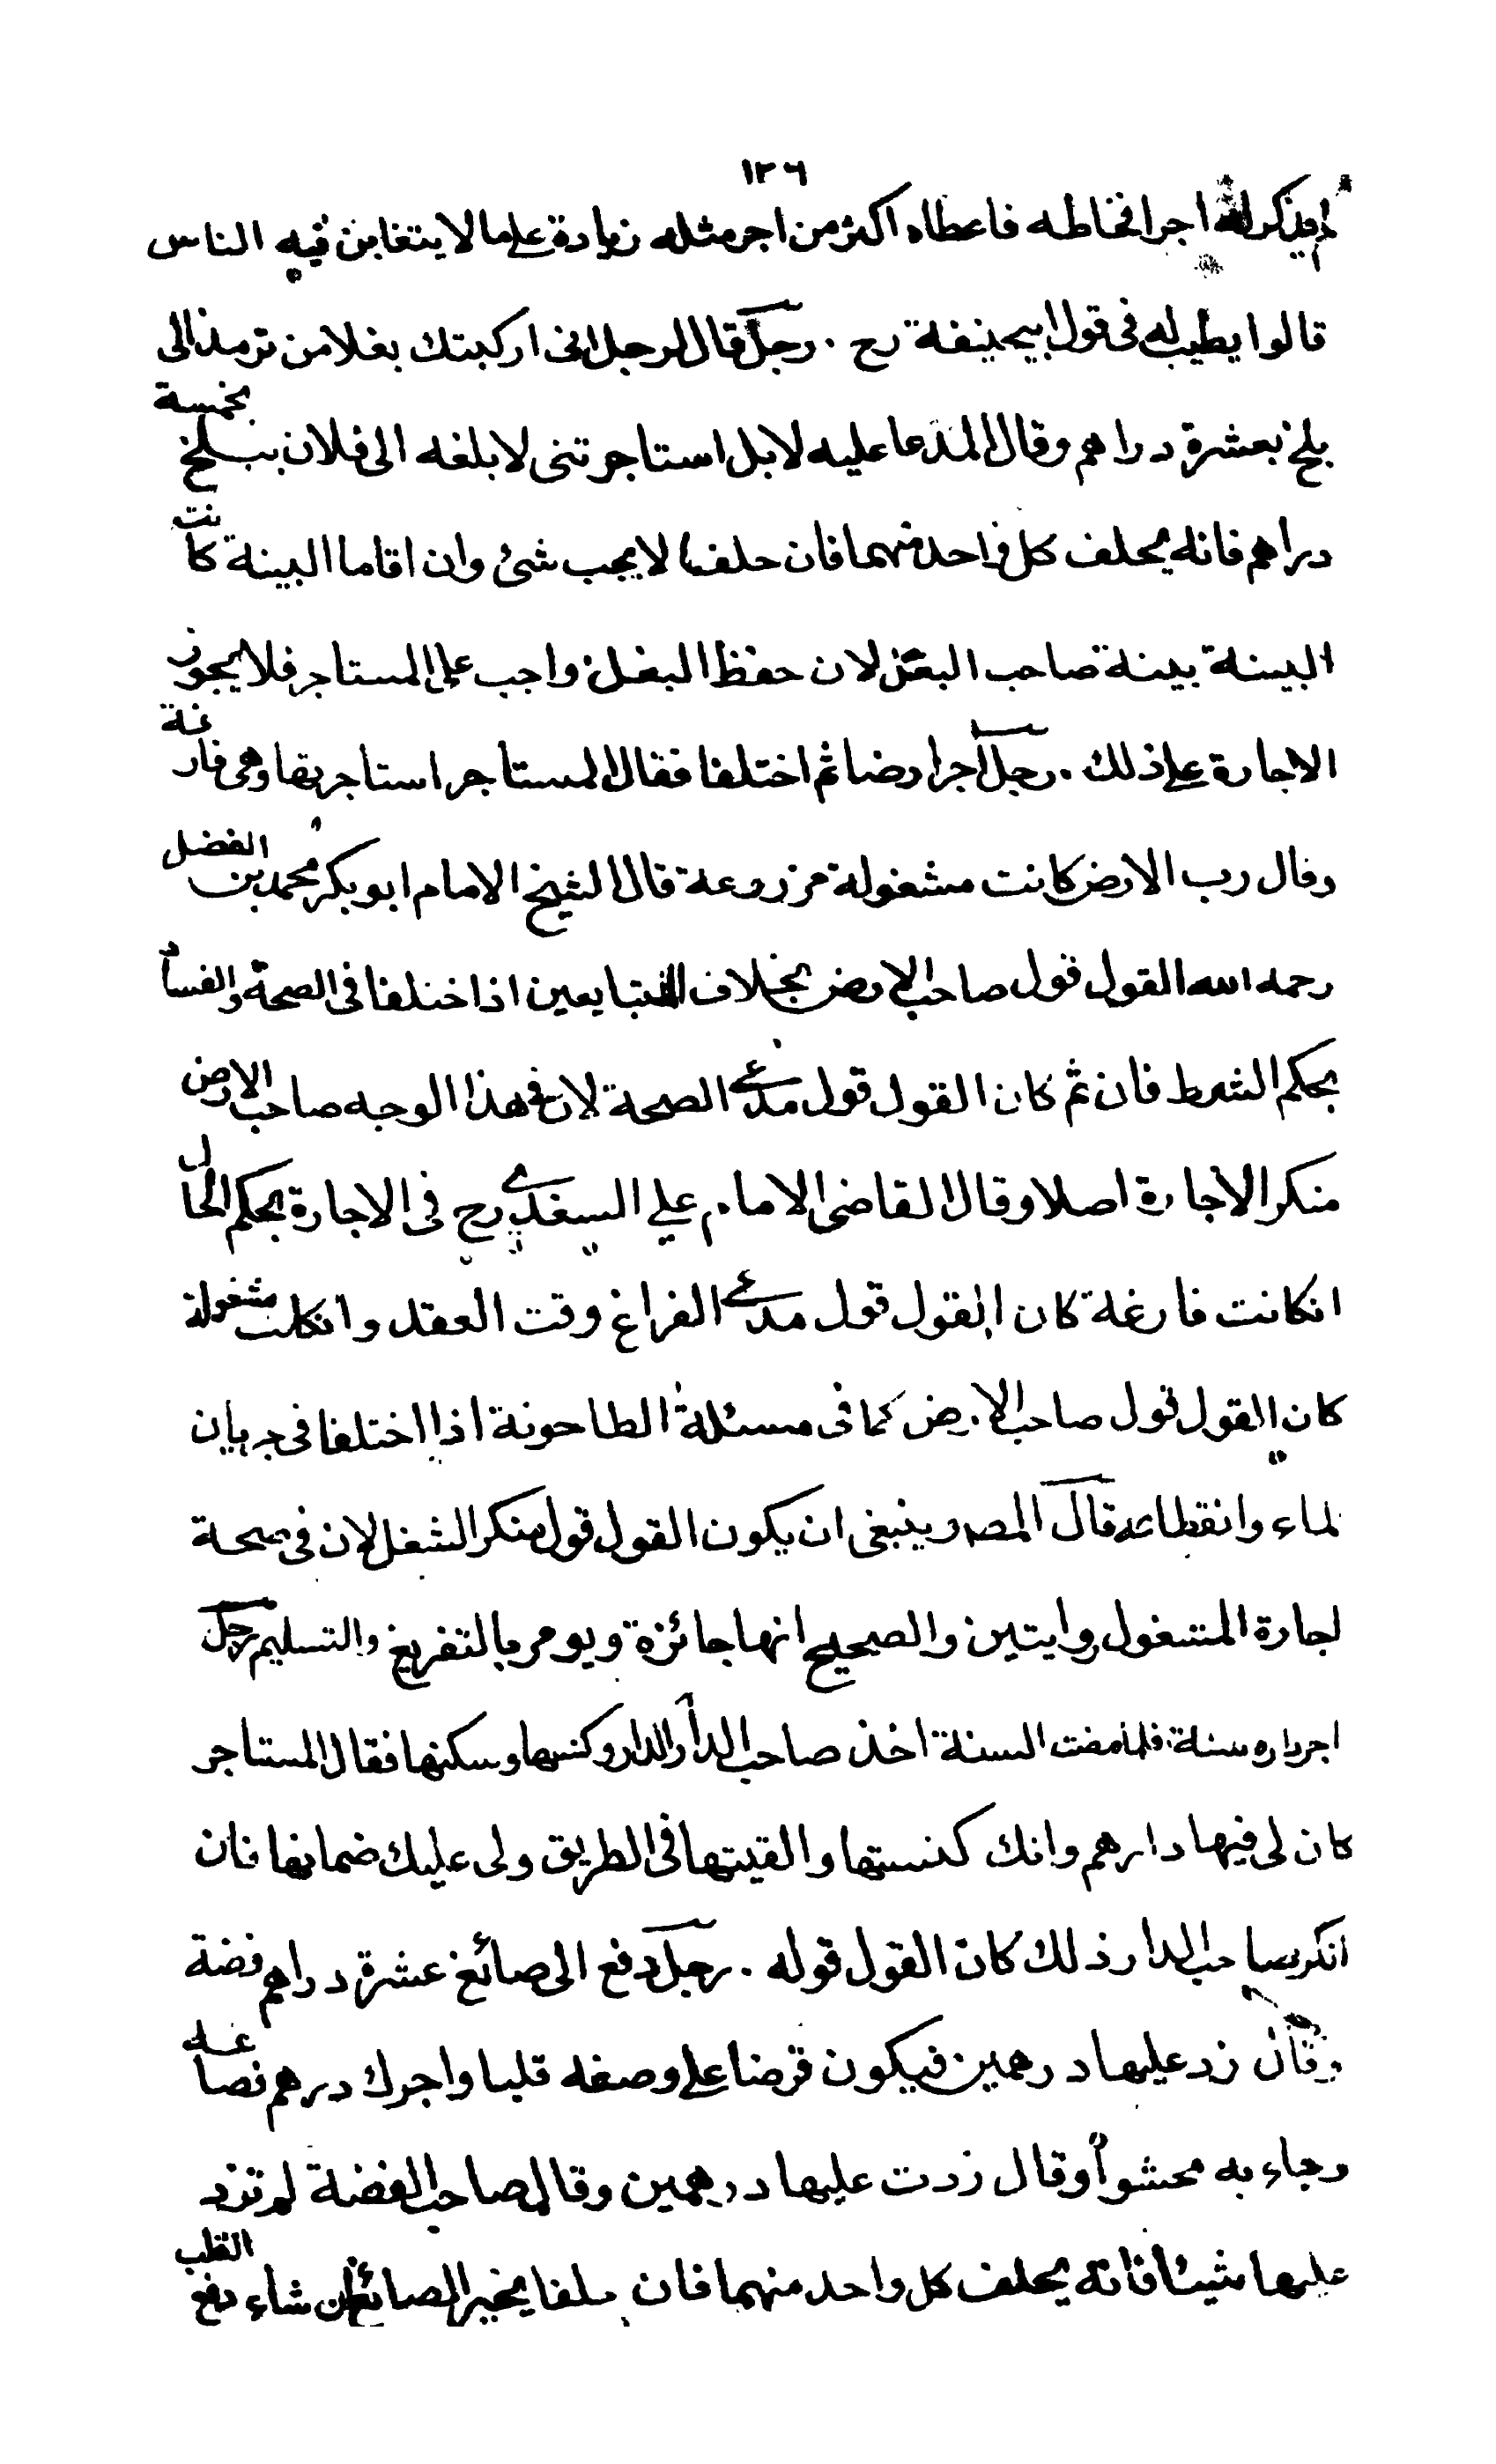 ١٢٦
لم يذكر له اجرا فخاطه فاعطاه اكثر من اجر مثله زيادة على ما لا يتغابن فيه الناس
قالوا يطيب له فى قول ابيحنيفة رح . رجل قال لرجل انى اركبتك بغلا من ترمذ الى
بلخ بعشرة دراهم وقال المدعا عليه لا بل استاجرتنى لابلغه الى فلان ببلخ بخمسة
دراهم فانه يحلف كل واحد منهما فان حلفا لا يجب شئ وان اقاما البينة كانت
البينة بينة صاحب البغل لان حفظ البغل واجب على المستاجر فلا يجوز
الاجارة على ذلك . رجل آجر ارضا ثم اختلفا فقال المستاجر استاجرتها وهى فارغة
وقال رب الارض كانت مشغولة مزروعة قال الشيخ الامام ابو بكر محمد بن الفضل
رحمه الله القول قول صاحب الارض بخلاف المتبايعين اذا ختلفا فى الصحة والفساد
بحكم الشرط فان ثم كان القول قول مدعى الصحة لان فى هذا الوجه صاحب الارض
منكر الاجارة اصلا وقال القاضى الامام على السغدى رح فى الاجارة بحكم الحال
انكانت فارغة كان القول قول مدعى الفراغ وقت العقد وانكانت مشغولة
كان القول قول صاحب الارض كما فى مسئلة الطاحونة اذا اختلفا فى جريان
لماء وانقطاعه قال المصـ وينبغى ان يكون القول قول منكر الشغل لان فى صحة
اجارة المشغول روايتين والصحيح انها جائزة ويومر بالتفريغ والتسليم رجل
اجر داره سنة فلما مضت السنة اخذ صاحب الدار الدار وكنسها وسكنها فقال المستاجر
كان لى فيها دارهم وانك كنستها والقيتها فى الطريق ولى عليك ضمانها فان
انكر صاحب الدار ذلك كان القول قوله . رجل دفع الى صائغ عشرة دراهم فضة
وقال زد عليها درهمين فيكون قرضا على وصغه قلبا واجرك درهم فصاغه
وجاء به محشوا وقال زدت عليها درهمين وقال صاحب الفضة لم تزد
عليها شيئا فانه يحلف كل واحد منهما فان حلفا يخير الصائغ ان شاء دفع القلب